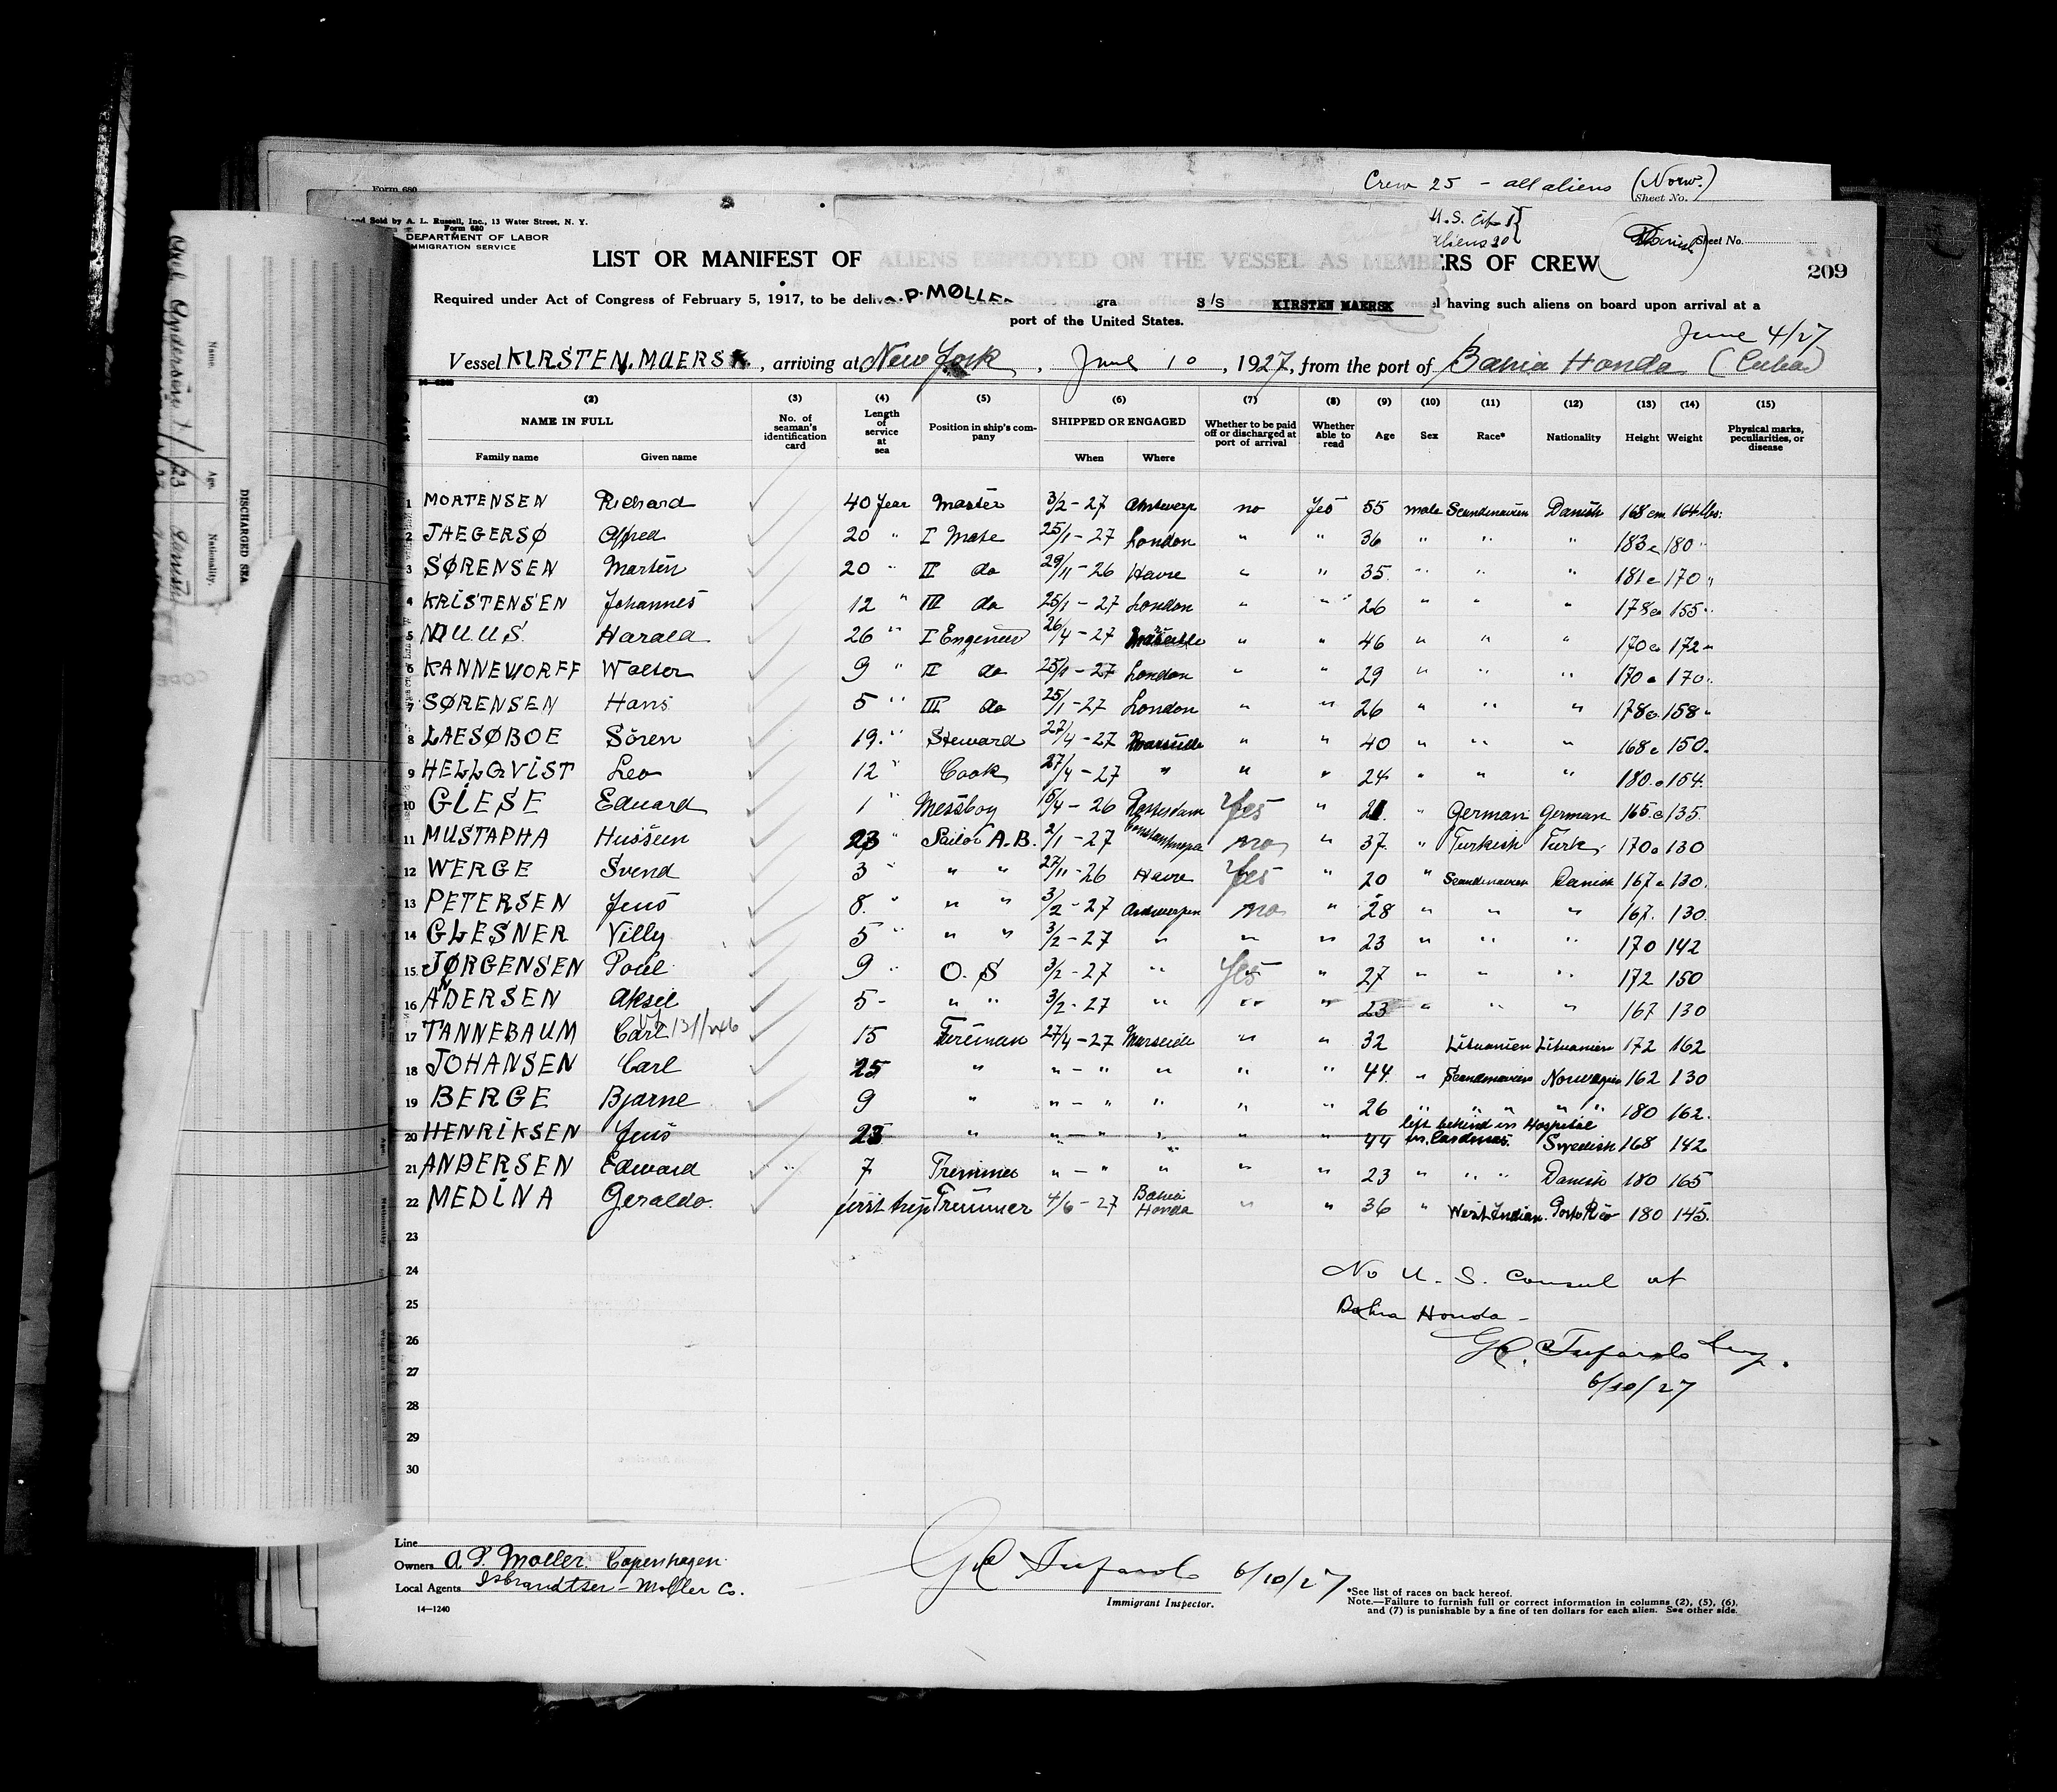 Form 680
Crew 25 - all aliens (Norw.)
Sheet No.
and Sold by A. L. Russell, Inc., 13 Water Street, N. Y.
Form 680
DEPARTMENT OF LABOR
IMMIGRATION SERVICE
U.S. Cit 1
aliens 20
(Danish)
Sheet No.
LIST OR MANIFEST OF ALIENS EMPLOYED ON THE VESSEL AS MEMBERS OF CREW
209
Required under Act of Congress of February 5, 1917, to be deliv
A.P. MØLLER
gra
S/S KIRSTEN MAERSK
having such aliens on board upon arrival at a
port of the United States.
June 4/27
Vessel KIRSTEN MAERSK, arriving at New York, June 10, 1927, from the port of Bahia Honda (Cuba)
(2) (3) (4) (5) (6) (7) (8) (9) (10) (11) (12) (13) (14) (15)
NAME IN FULL No. of seaman's identification card Length of service at sea Position in ship's company SHIPPED OR ENGAGED Whether to be paid off or discharged at port of arrival Whether able to read Age Sex Race* Nationality Height Weight Physical marks, peculiarities, or disease
Family name Given name When Where
1 MORTENSEN Richard 40 Year Master 3/2-27 Antwerp no Yes 55 male Scandinavien Danish 168 cm 164 lbs:
2 JAEGERSØ Alfred 20 " I Mate 25/1-27 London " " 36 " " " 183 c 180 "
3 SØRENSEN Martin 20 " II do 29/11-26 Havre " " 35 " " " 181 c 170 "
4 KRISTENSEN Johannes 12 " III do 25/1-27 London " " 26 " " " 178 c 155 "
5 Harald 26 " I Engeneer 26/4-27 Marseille " " 46 " " " 170 c 172 "
6 KANNEWORFF Walter 9 " II do 25/1-27 London " " 29 " " " 170 c 170 "
7 SØRENSEN Hans 5 " III do 25/1-27 London " " 26 " " " 178 c 158 "
8 LAESØBOE Sören 19. " Steward 27/4-27 Marseille " " 40 " " " 168 c 150.
9 HELLQVIST Leo 12 " Cook 27/4-27 " " " 24 " " " 180. c 154.
10 GIESE Eduard 1 " Messboy 15/4-26 Rotterdam Yes " 21. " German German 165. c 135.
11 MUSTAPHA Hussein 23 " Sailor A.B. 2/1-27 no " 37. " Turkish Turk. 170 c 130
12 WERGE Svend 3 " " " 27/11-26 Havre Yes " 20 " Scandinavien Danish 167 c 130.
13 PETERSEN Jens 8. " " " 3/2-27 Antwerpen no " 28 " " " 167. 130.
14 GLESNER Villy 5 " " " 3/2-27 " " " 23 " " " 170 142
15 JØRGENSEN Poul 9 " O.S 3/2-27 " Yes " 27 " " " 172 150
16 ANDERSEN Aksel 5 - " " 3/2-27 " " " 23 " " " 167 130
17 TANNEBAUM Carl 15 Fireman 27/4-27 Marseille " " 32 Lituanien Lituanien 172 162
18 JOHANSEN Carl 25 " " - " " " " 44. " Scandinavien Norwegin 162 130
19 BERGE Bjarne 9 " " - " " " " 26 " " " " " 180 162.
left behind in Hospital
20 HENRIKSEN Jens 25 " " - " " " " 44 Swedish 168 142
21 ANDERSEN Edward 7 Tremmer " - " " " " 23 " " " Danish 180 165
22 MEDINA Geraldo. first trip Tremmer 4/6-27 Bahia Honda " " 36 " West Indian. Porto Rico 180 145.
23
24
25
26
27
28
29
30
No U.S. Consul at
Bahia Honda -
6/10/27
Line
Owners A.P. Moller. Copenhagen.
Local Agents Isbrandtsen - Moller Co.
6/10/27
Immigrant Inspector.
14—1240
*See list of races on back hereof.
Note.—Failure to furnish full or correct information in columns (2), (5), (6),
and (7) is punishable by a fine of ten dollars for each alien. See other side.
Name.
Age.
Nationality.
DISCHARGED SEA